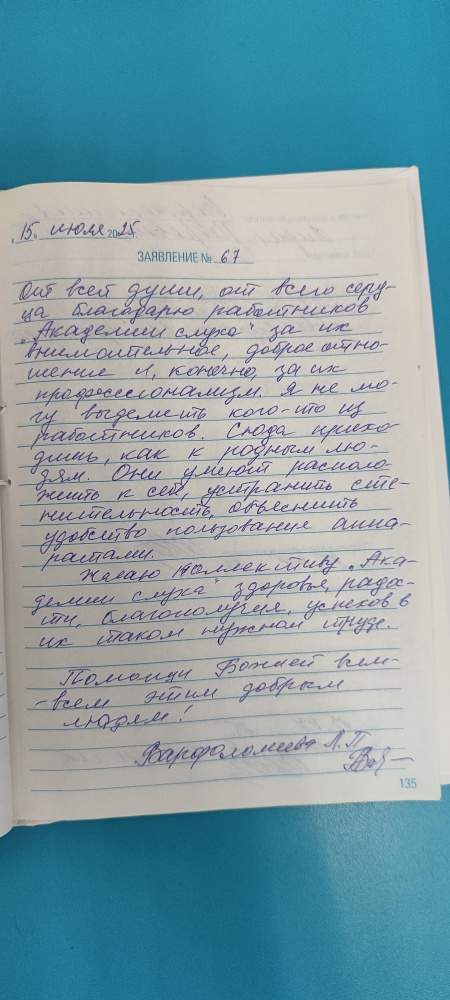 15. июля 2025
ЗАЯВЛЕНИЕ № 67
От всей души, от всего серд-
ца благодарю работников
„Академии слуха" за их
внимательное, доброе отно-
шение и, конечно, за их
профессионализм. Я не мо-
гу выделить кого-то из
работников. Сюда прихо-
дишь, как к родным лю-
дям. Они умеют располо-
жить к себе, устранить сте-
нительность, объяснить
удобство пользования аппа-
ратами.
Желаю коллективу „Ака-
демии слуха" здоровья, радос-
ти, благополучия, успехов в
их таком нужном труде.
Помощи Божией всем-
-всем этим добрым
людям!
Варфоломеева Л.П.
135